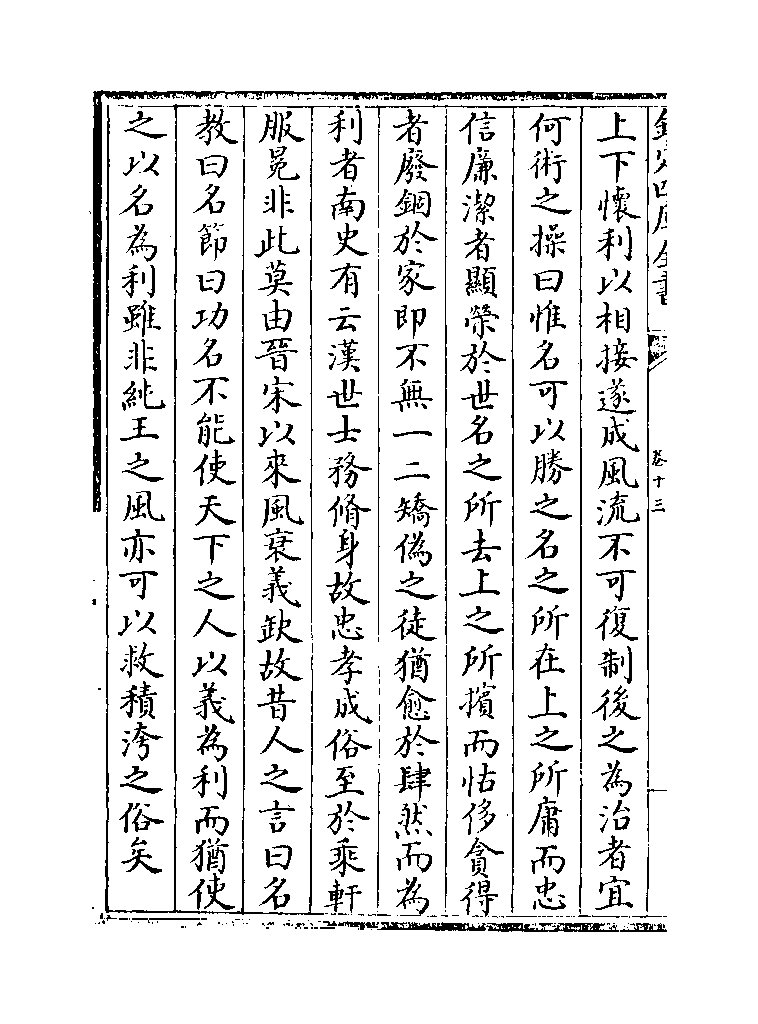 欽定四庫全書
卷十三
上下懷利以相接遂成風流不可復制後之為治者宜
何術之操曰惟名可以勝之名之所在上之所庸而忠
信廉潔者顯榮於世名之所去上之所擯而怙侈貪得
者廢錮於家即不無一二矯偽之徒猶愈於肆然而為
利者南史有云漢世士務脩身故忠孝成俗至於乘軒
服冕非此莫由晉宋以來風衰義缺故昔人之言曰名
教曰名節曰功名不能使天下之人以義為利而猶使
之以名為利雖非純王之風亦可以救積洿之俗矣